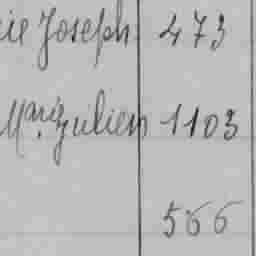 cie Joseph 473
Marie Julien 1103
566